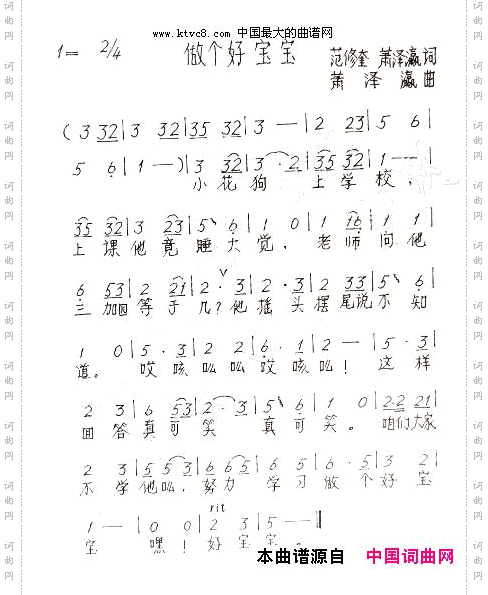 www.ktvc8.com 中国最大的曲谱网
1= 2/4 做个好宝宝 范修奎 萧泽瀛词
萧泽瀛 曲
( 3 32 | 3 32 | 35 32 | 3 — | 2 23 | 5 6 |
5 6 | 1 — ) | 3 32 | 3 · 2 | 35 32 | 1 — |
小花狗 上学校，
35 32 | 3 23 | 5 6 | 1 0 | 1 16 | 1 1 |
上课他竟睡大觉，老师问他
6 53 | 2 21 | 2 · 3 | 2 · 3 | 2 33 | 5 6 |
三加四等于几？他摇头摆尾说不知
1 0 | 5 · 3 | 2 2 | 6 · 1 | 2 — | 5 · 3 |
道。哎咳吆吆哎咳吆！这样
2 3 | 6 53 | 2 · 3 | 5 6 | 1 0 | 2·2 21 |
回答真可笑 真可笑。咱们大家
2 3 | 5 5 3 | 6 6 5 | 6 5 | 6 · 5 | 3 2 |
不学他吆，努力 学习做个好宝
rit
1 — | 0 0 | 2 3 | 5 — ‖
宝 嘿！好宝宝。
本曲谱源自 中国词曲网
词曲网
词曲网
词曲网
词曲网
词曲网
词曲网
词曲网
词曲网
词曲网
词曲网
词曲网
词曲网